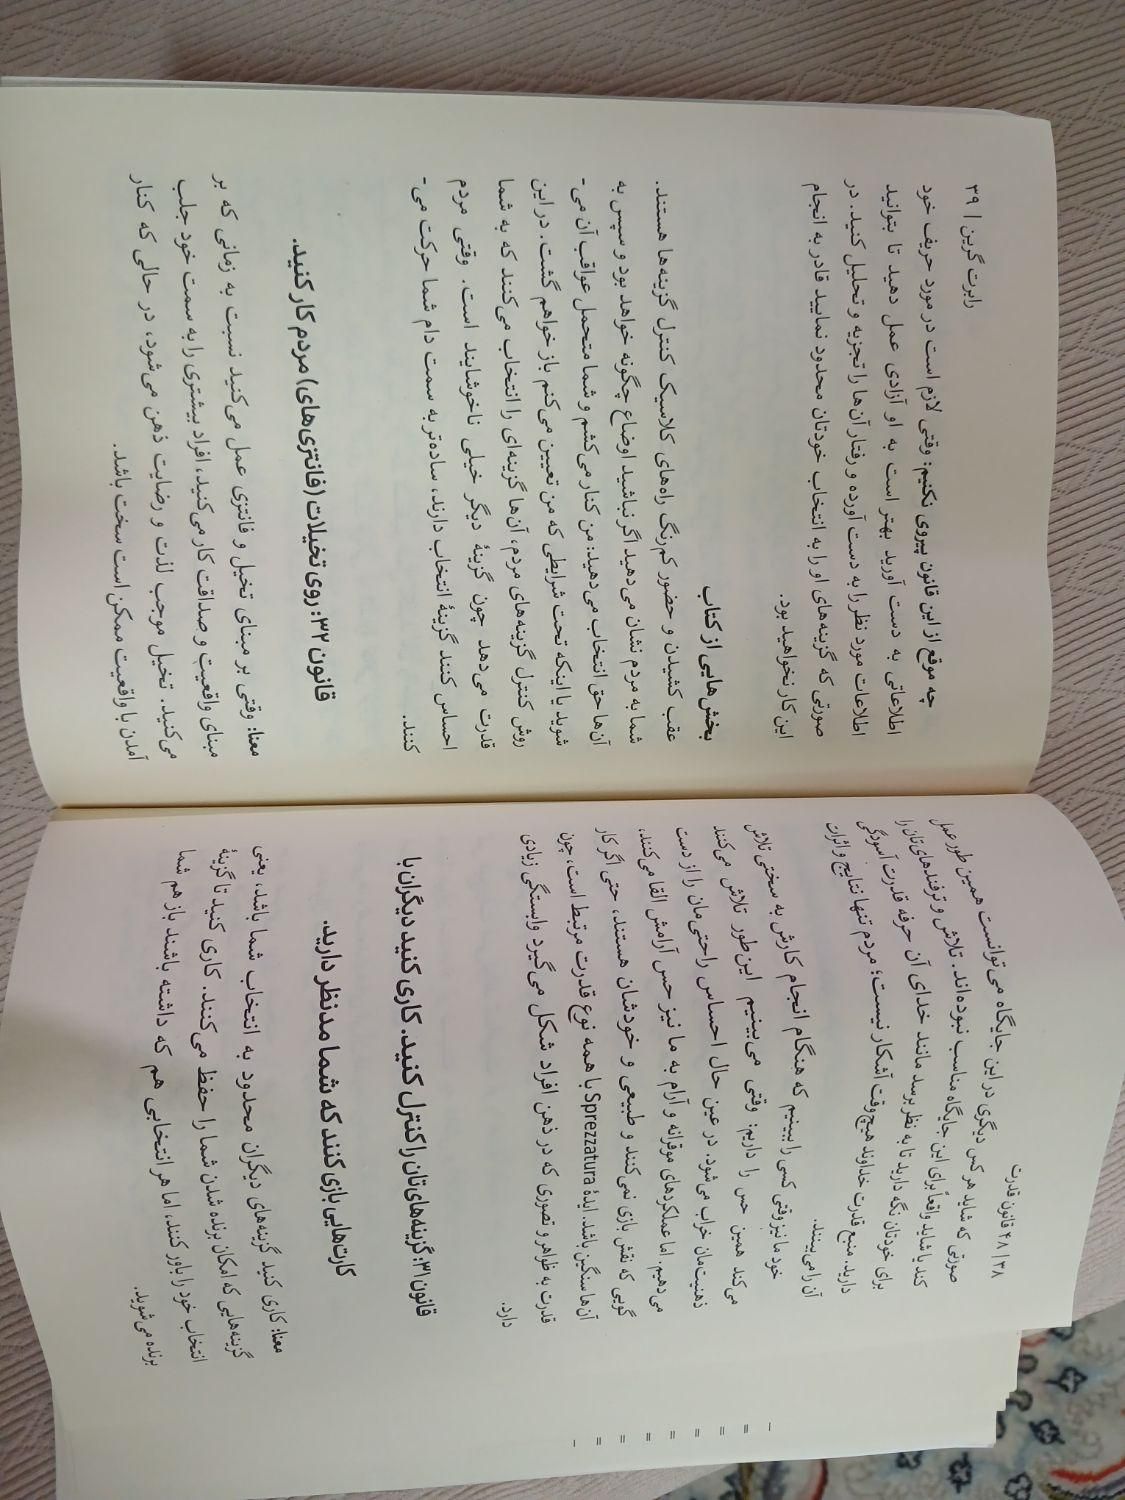 ۳۸ | ۴۸ قانون قدرت
صورتی که شاید هر کس دیگری در این جایگاه می‌توانست همین طور عمل
کند یا شاید واقعاً برای این جایگاه مناسب نبوده‌اند. تلاش و ترفندهای‌تان را
برای خودتان نگه دارید تا به نظر برسد مانند خدای آن حرفه قدرت آسودگی
دارید. منبع قدرت خداوند هیچ‌وقت آشکار نیست؛ مردم تنها نتایج و اثرات
آن را می‌بینند.
خود ما نیز وقتی کسی را ببینیم که هنگام انجام کارش به سختی تلاش
می‌کند همین حس را داریم: وقتی می‌بینیم این‌طور تلاش می‌کنند
ذهنیت‌مان خراب می‌شود. در عین حال احساس راحتی‌مان را از دست
می‌دهیم. اما عملکردهای موقرانه و آرام به ما نیز حس آرامش القا می‌کنند،
گویی که نقش بازی نمی‌کنند و طبیعی و خودشان هستند، حتی اگر کار
آن‌ها سنگین باشد. ایدۀ Sprezzatura با همه نوع قدرت مرتبط است، چون
قدرت به ظاهر و تصوری که در ذهن افراد شکل می‌گیرد وابستگی زیادی
دارد.
قانون ۳۱: گزینه‌های‌تان را کنترل کنید. کاری کنید دیگران با
کارت‌هایی بازی کنند که شما مدنظر دارید.
معنا: کاری کنید گزینه‌های دیگران محدود به انتخاب شما باشد، یعنی
گزینه‌هایی که امکان برنده شدن شما را حفظ می‌کنند. کاری کنید تا گزینۀ
انتخاب خود را باور کنند، اما هر انتخابی هم که داشته باشند باز هم شما
برنده می‌شوید.
رابرت گرین | ۳۹
چه موقع از این قانون پیروی نکنیم: وقتی لازم است در مورد حریف خود
اطلاعاتی به دست آورید بهتر است به او آزادی عمل دهید تا بتوانید
اطلاعات مورد نظر را به دست آورده و رفتار آن‌ها را تجزیه و تحلیل کنید. در
صورتی که گزینه‌های او را به انتخاب خودتان محدود نمایید قادر به انجام
این کار نخواهید بود.
بخش‌هایی از کتاب
عقب کشیدن و حضور کم‌رنگ راه‌های کلاسیک کنترل گزینه‌ها هستند.
شما به مردم نشان می‌دهید اگر نباشید اوضاع چگونه خواهد بود و سپس به
آن‌ها حق انتخاب می‌دهید: من کنار می‌کشم و شما متحمل عواقب آن می-
شوید یا اینکه تحت شرایطی که من تعیین می‌کنم باز خواهم گشت. در این
روش کنترل گزینه‌های مردم، آن‌ها گزینه‌ای را انتخاب می‌کنند که به شما
قدرت می‌دهد چون گزینۀ دیگر خیلی ناخوشایند است. وقتی مردم
احساس کنند گزینۀ انتخاب دارند، ساده‌تر به سمت دام شما حرکت می-
کنند.
قانون ۳۲: روی تخیلات (فانتزی‌های) مردم کار کنید.
معنا: وقتی بر مبنای تخیل و فانتزی عمل می‌کنید نسبت به زمانی که بر
مبنای واقعیت و صداقت کار می‌کنید، افراد بیشتری را به سمت خود جلب
می‌کنید. تخیل موجب لذت و رضایت ذهن می‌شود، در حالی که کنار
آمدن با واقعیت ممکن است سخت باشد.